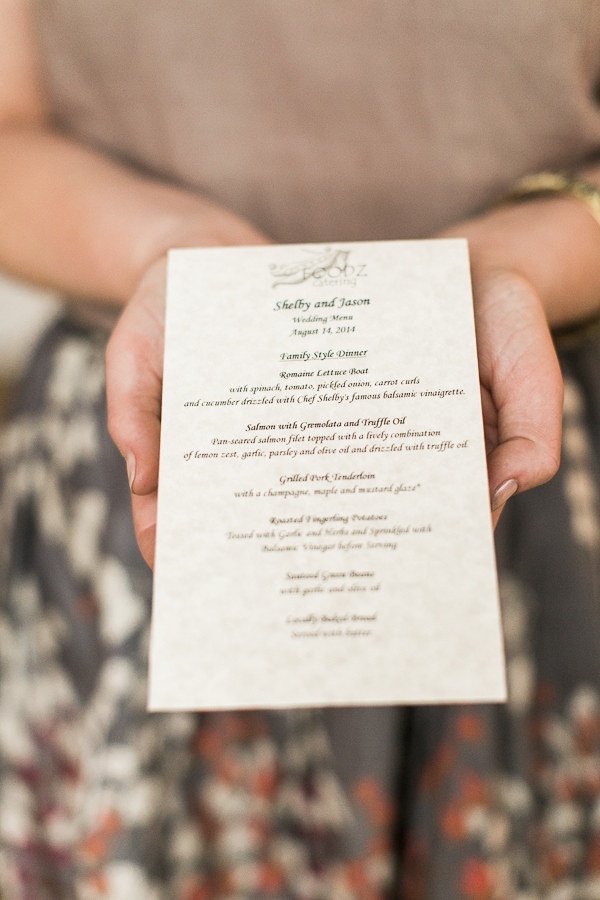 FOODZ
catering
Shelby and Jason
Wedding Menu
August 14, 2014
Family Style Dinner
Romaine Lettuce Boat
with spinach, tomato, pickled onion, carrot curls
and cucumber drizzled with Chef Shelby's famous balsamic vinaigrette.
Salmon with Gremolata and Truffle Oil
Pan-seared salmon filet topped with a lively combination
of lemon zest, garlic, parsley and olive oil and drizzled with truffle oil.
Grilled Pork Tenderloin
with a champagne, maple and mustard glaze*
Roasted Fingerling Potatoes
Tossed with Garlic and Herbs and Sprinkled with
Balsamic Vinegar before Serving
Sauteed Green Beans
with garlic and olive oil
Locally Baked Bread
Served with butter